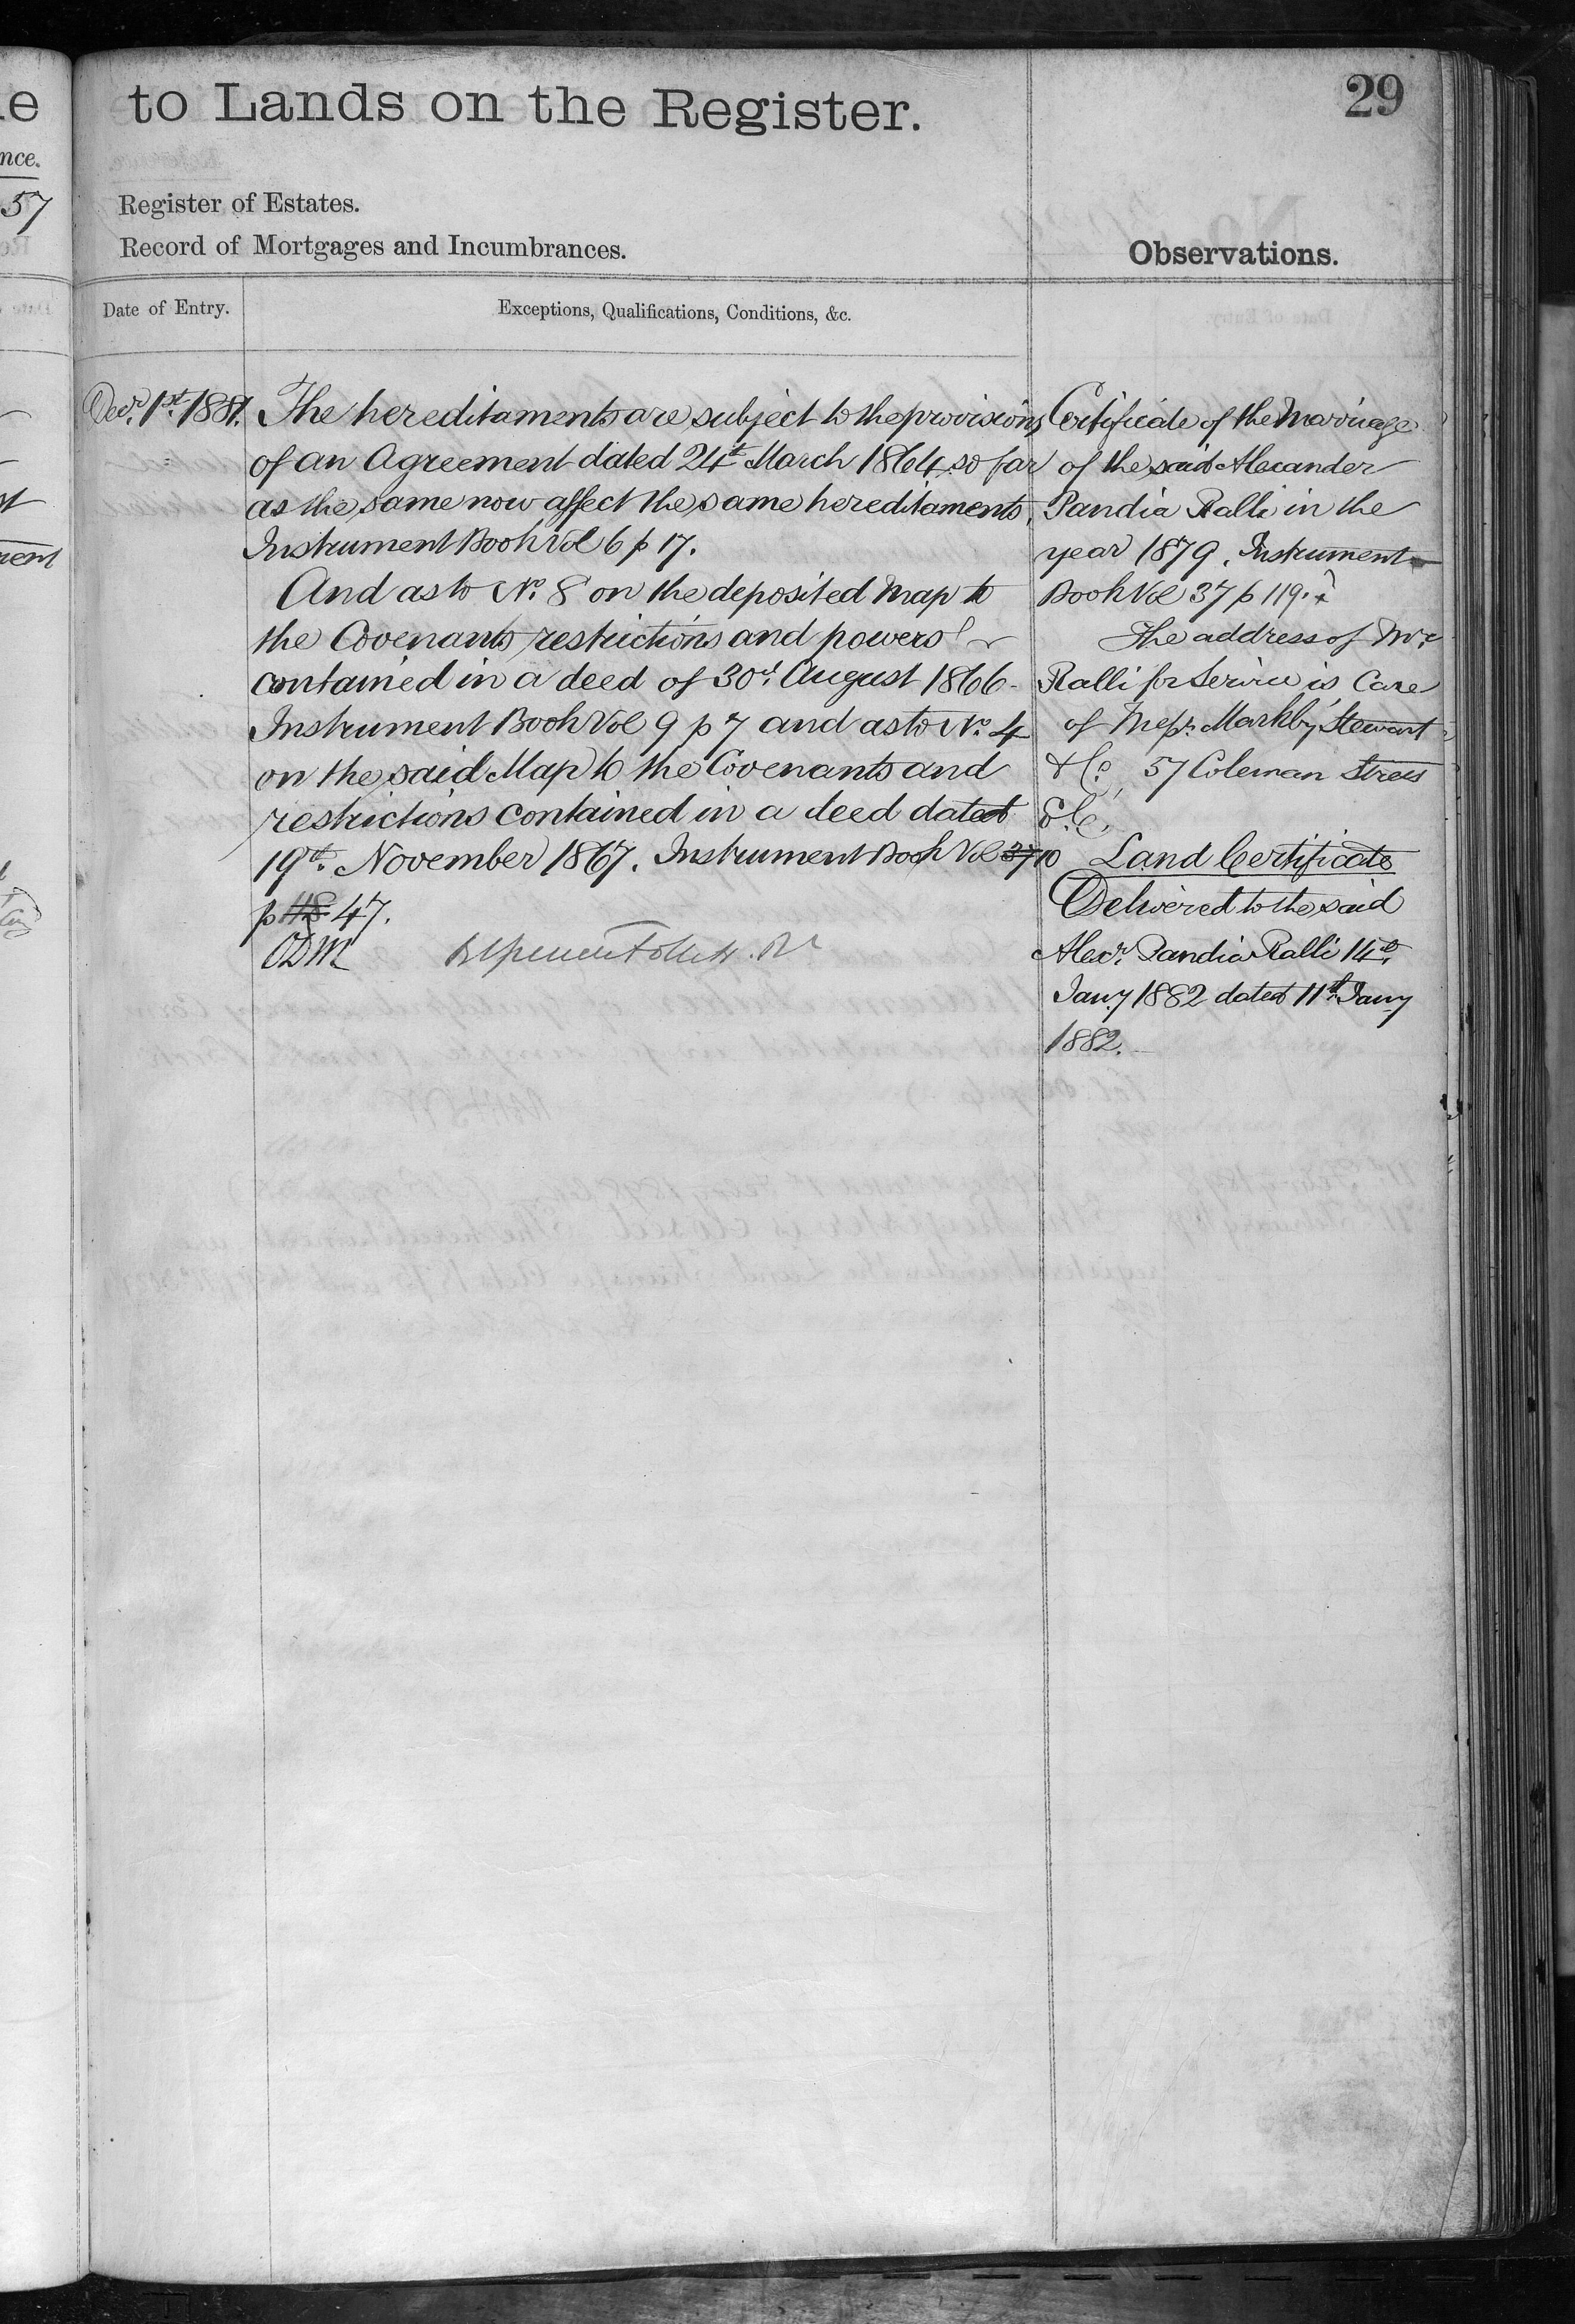 to Lands on the Register.
29
Register of Estates.
Record of Mortgages and Incumbrances.
Observations.
Date of Entry.
Exceptions, Qualifications, Conditions, &c.
Decr. 1st. 1881.
The hereditaments are subject to the provisions
of an Agreement dated 24th March 1864 so far
as the same now affect the same hereditaments.
Instrument Book Vol 6 p 17.
And as to No. 8 on the deposited Map to
the Covenants restrictions and powers
contained in a deed of 30th. August 1866
Instrument Book Vol 9 p 7 and as to No. 4
on the said Map to the Covenants and
restrictions contained in a deed dated
19th. November 1867. Instrument Book Vol 37 10
p 48 47.
Certificate of the Marriage
of the said Alexander
Pandia Ralli in the
year 1879. Instrument
Book Vol 37 p 119.
The address of Mr.
Ralli for Service is Care
of Messrs. Markby, Stewart
& Co, 57 Coleman Street
E.C.
Land Certificate
Delivered to the said
Alexr. Pandia Ralli 14th.
Jany 1882 dated 11th. Jany
1882.
nce.
57